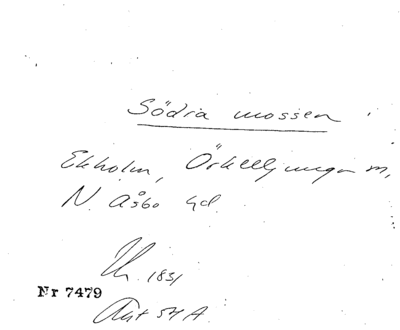 Södra mossen
Ekholm, Örkelljunga m,
N. Åsbo hd.
1831
Nr 7479
Akt 54 A